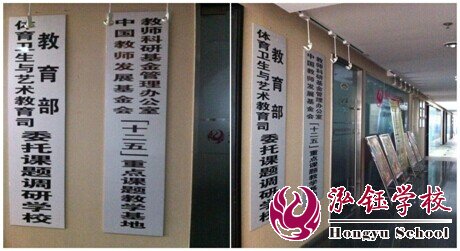 教育部
体育卫生与艺术教育司
委托课题调研学校
教师科研基金管理办公室
中国教师发展基金会
「十二五」重点课题教学基地
教育部
体育卫生与艺术教育司
委托课题调研学校
教师科研基金管理办公室
中国教师发展基金会
「十二五」重点课题教学
泓钰学校
Hongyu School